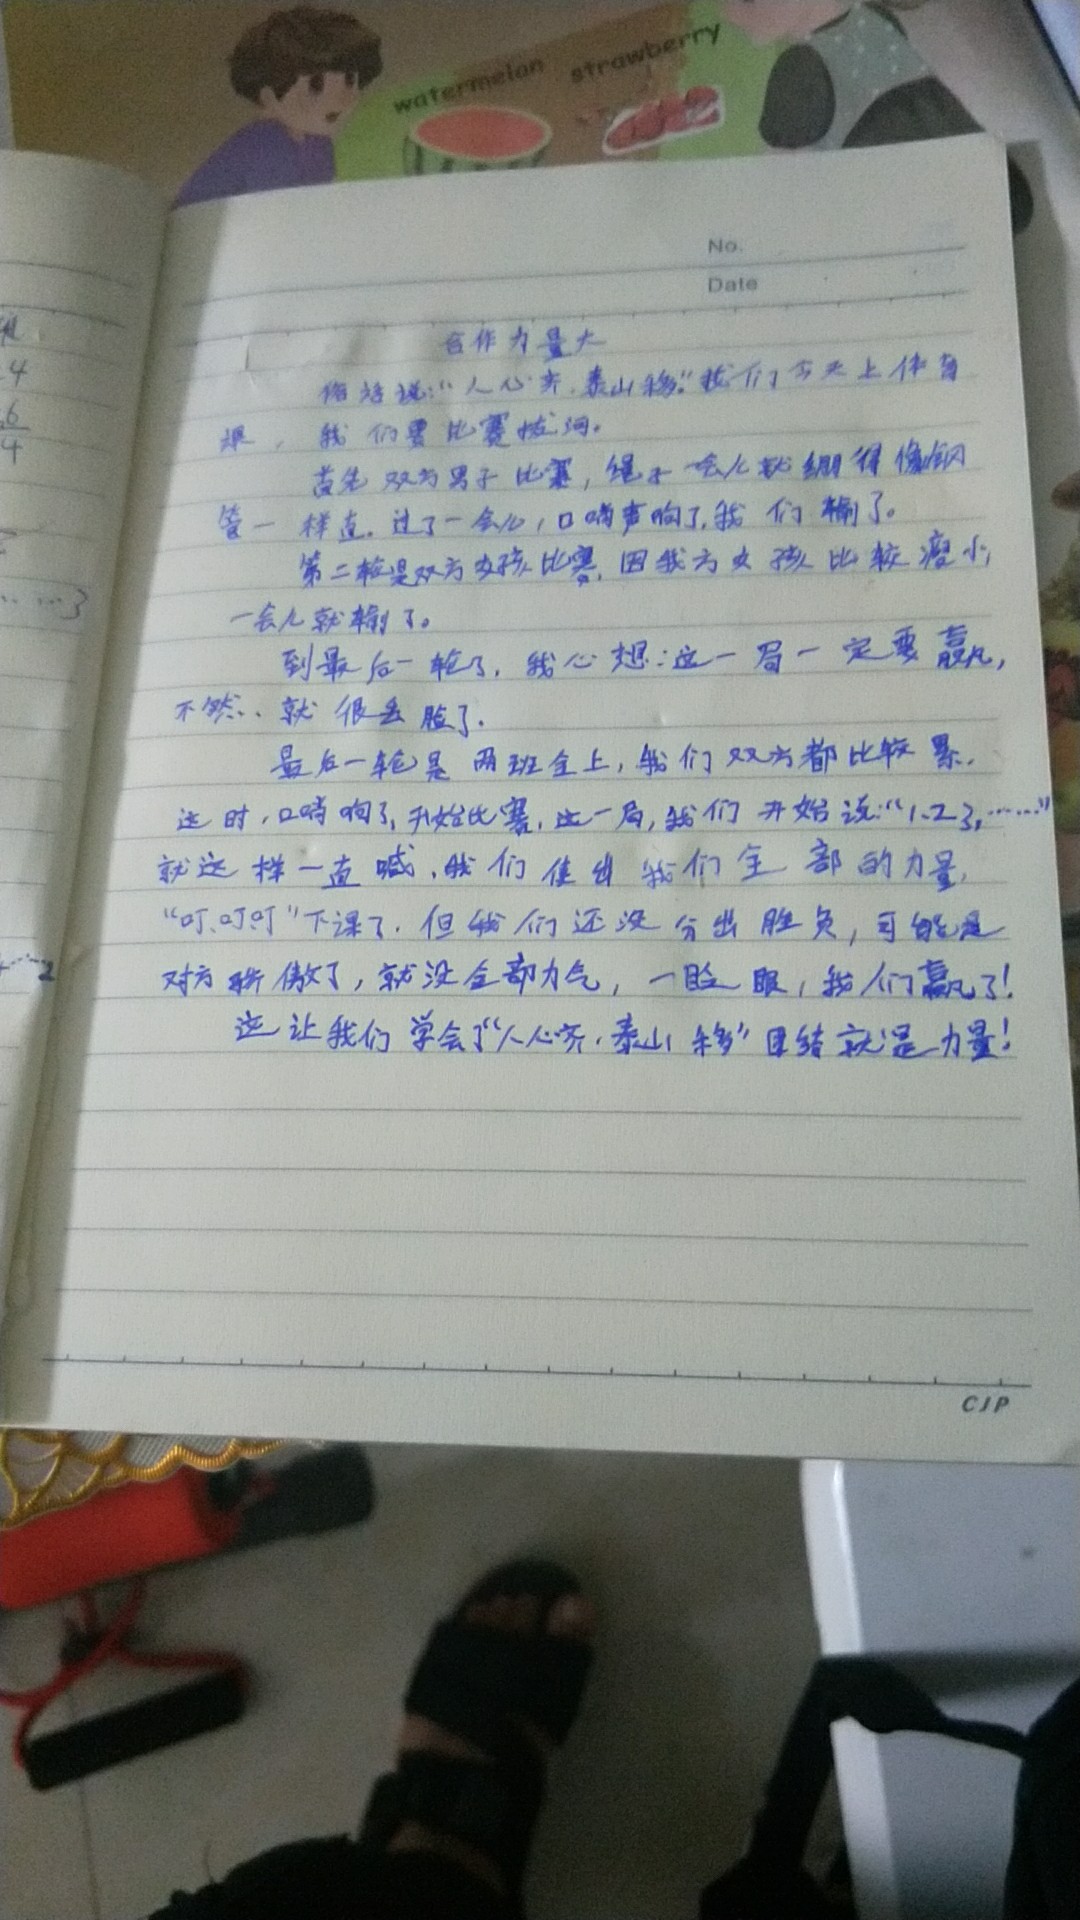 watermelon
strawberry
No.
Date
合作力量大
俗话说:“人心齐,泰山移。”我们今天上体育
课,我们要比赛拔河。
首先双方男子比赛,绳子一会儿就绷得像钢
管一样直。过了一会儿,口哨声响了,我们输了。
第二轮是双方女孩比赛,因我方女孩比较瘦小,
一会儿就输了。
到最后一轮了,我心想:这一局一定要赢,
不然..就很丢脸了.
最后一轮是两班全上,我们双方都比较累.
这时,口哨响了,开始比赛,这一局,我们开始说:“1.2.3,……”
就这样一直喊,我们使出我们全部的力量.
“叮.叮.叮”下课了.但我们还没分出胜负,可能是
对方骄傲了,就没全部力气,一眨眼,我们赢了!
这让我们学会了“人心齐,泰山移”团结就是力量!
CJP
4
6
4